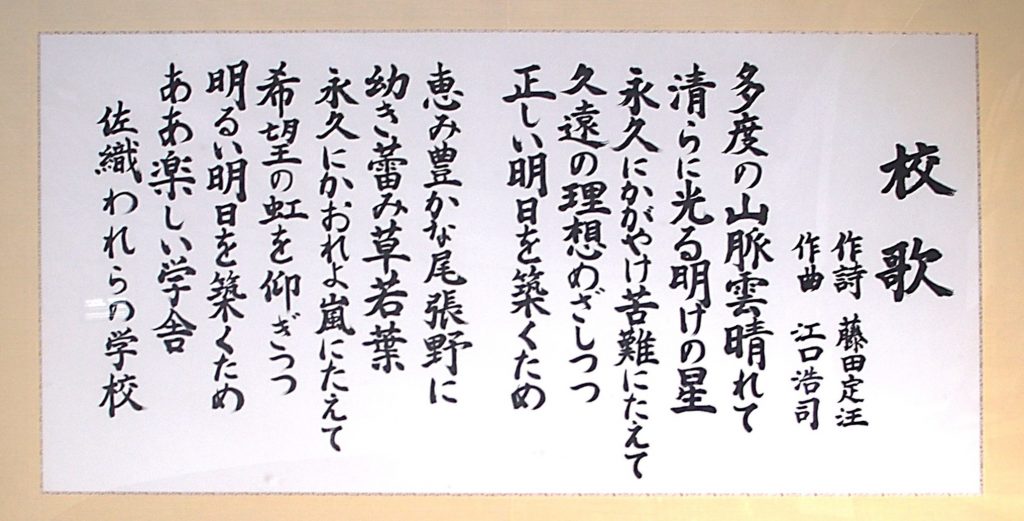 校歌
作詩 藤田定汪
作曲 江口浩司
多度の山脈雲晴れて
清らに光る明けの星
永久にかがやけ苦難にたえて
久遠の理想めざしつつ
正しい明日を築くため
恵み豊かな尾張野に
幼き蕾み草若葉
永久にかおれよ嵐にたえて
希望の虹を仰ぎつつ
明るい明日を築くため
ああ楽しい学舎
佐織われらの学校